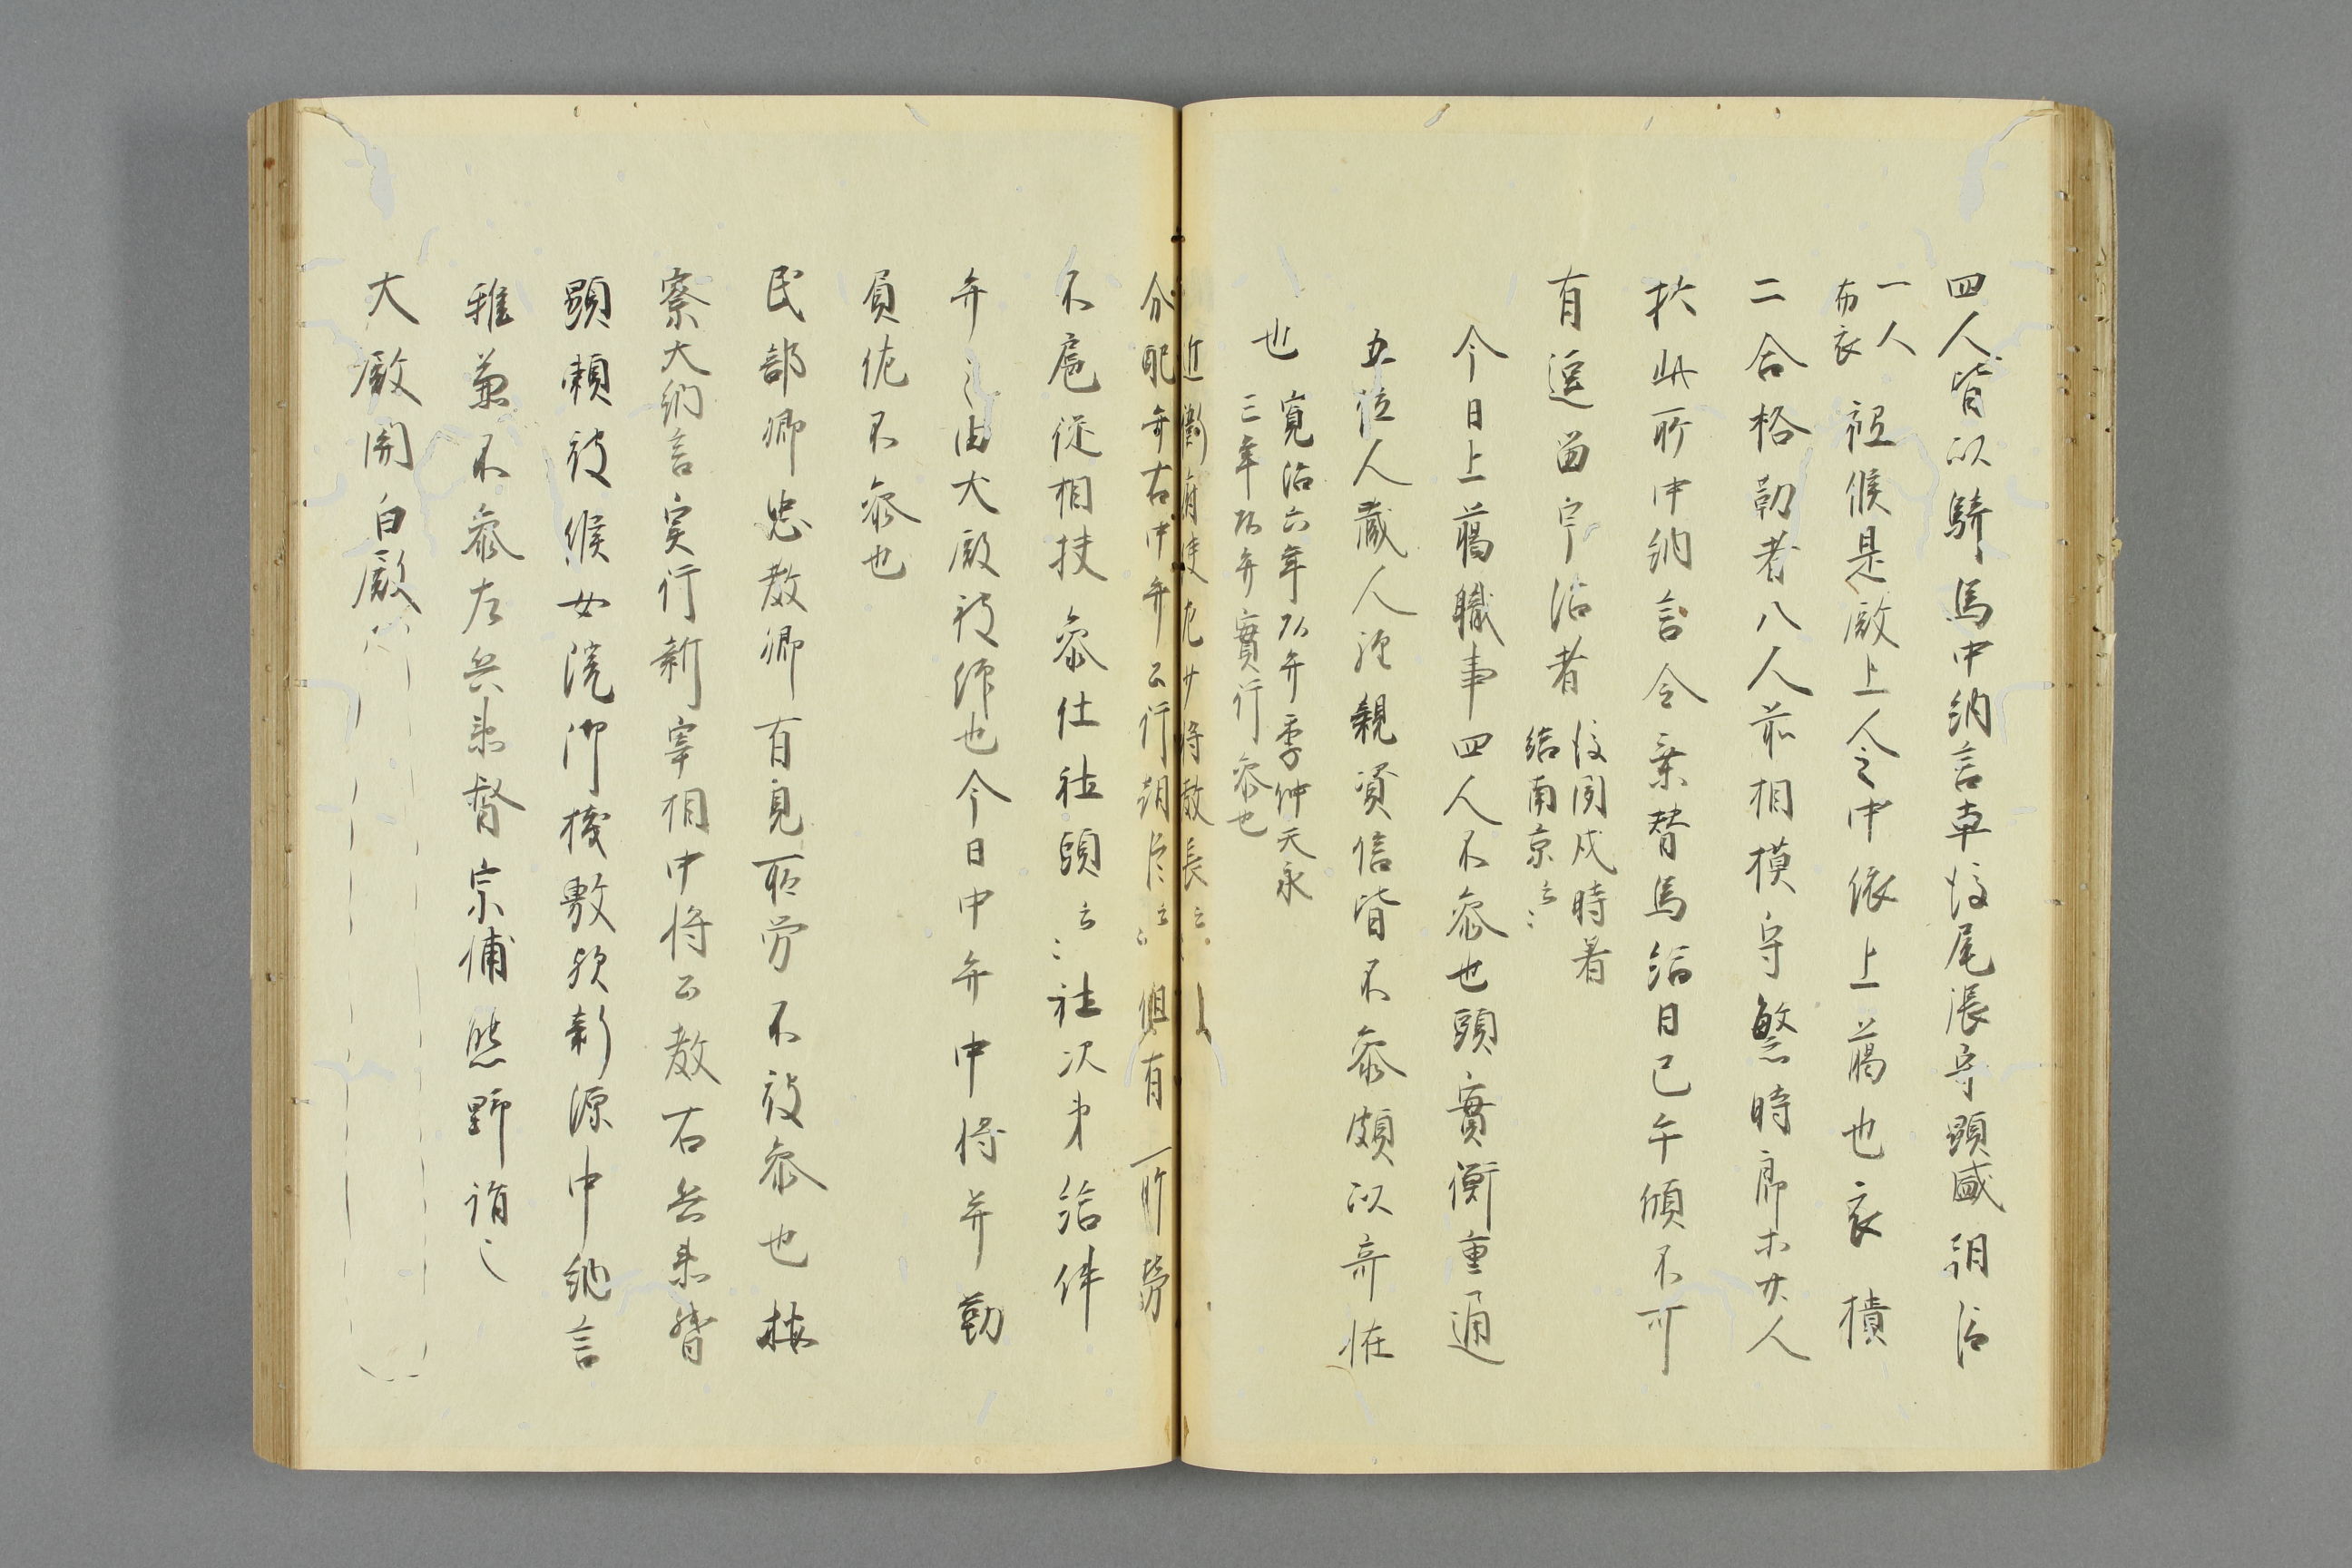 四人皆以騎馬中納言車後尾張守顕盛朝臣
一人布衣祗候是殿上人之中依上﨟也衣櫃
二合格勤者八人前相模守繁時郎等廿人
於此所中納言令乗替馬給日已午傾不可
有逗留宇治者後聞戌時着給南京云々
今日上﨟職事四人不参也頭實衡重通
五位人蔵人経親資信皆不参頗以奇恠
也寛治六年右少弁季仲天永三年右少弁實行参也
近衛府使左少将教長云々
分配弁右中弁公行朝臣云々但有所労
不扈従相扶参仕社頭云々社次第給件
弁之由大殿被仰也今日中弁中将并勤
負佐不参也
民部卿忠教卿有見所労不被参也按
察大納言實行新宰相中将公教右兵衛督
顕頼被候女院御棧敷欤新源中納言
雅兼不参左兵衛督宗輔熊野詣之
大殿関白殿